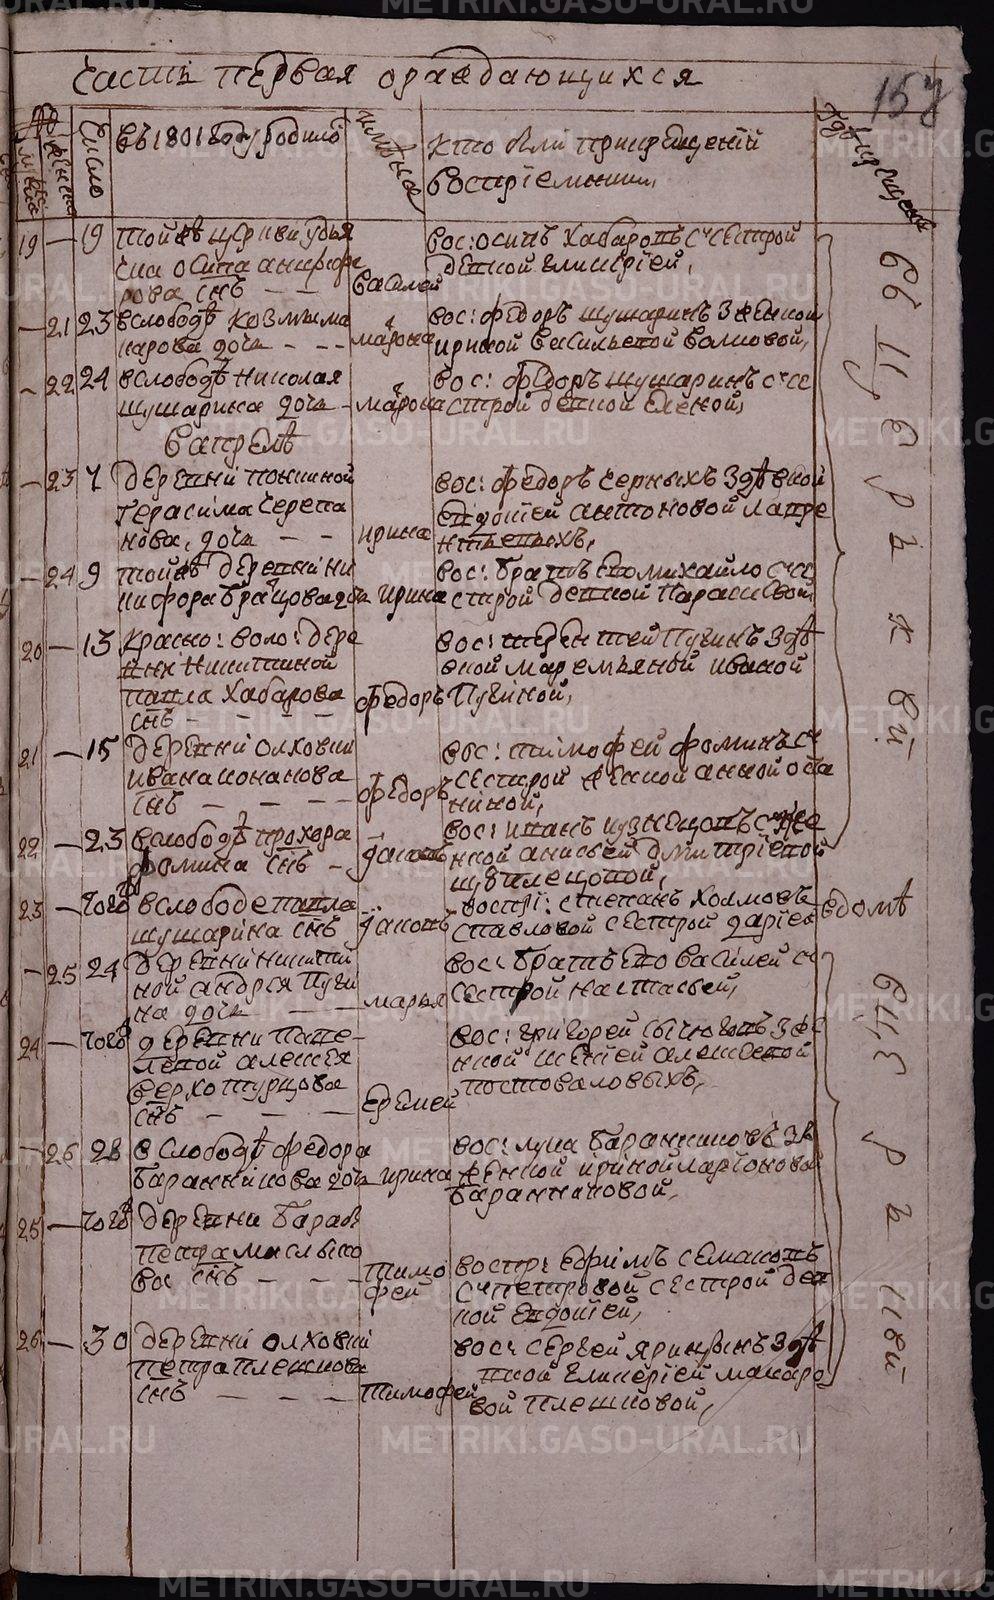 Часть первая ораждающихся
157
Число
въ 1801 году родилис
имяна
кто были при крещеній
воспріемники,
где крещены
19 — 19 той церкви дья
чка осипа
рова снъ — — Василей
вос: осипъ Хабаровъ с сестрой
девкой гликеріей,
— 21 23 в слободѣ козмы ма
карова дочь — — марѳа
вос: федоръ шушаринъ з женкой
ириной васильевой волковой,
— 22 24 в слободѣ Николая
шушарина дочь — марѳа
вос: федоръ шушаринъ с се
строй девкой еленой,
в апрелѣ
— 23 7 деревни понкиной
герасима черепа
нова, дочь — — ирина
вос: федоръ черныхъ з дѣвкой
евдокіей антоновой лавре
нтьевыхъ,
— 24 9 той деревни ни
кифора бранцова дочь ирина
вос: братъ ево михайло с се
строй девкой параскевой
20 — 13 красно: воло: дере
вни Никитиной
павла Хабарова
снъ — — — федоръ
вос: терентей Пугинъ з дѣ
вкой маремьяной ивановой
Пугиной,
21 — 15 деревни олховки
ивана конанова
снъ — — — федоръ
вос: тимофей фоминъ с
сестрой женкой анной
22 — 23 в слободѣ прохора
фомина снъ — яковъ
вос: иванъ кузнецовъ с же
нкой анисьей дмитріевой
23 — того в слободе павла
шушарина снъ — яковъ
воспрі: степанъ холмовъ
с павловой сестрой дарьей
— 25 24 деревни никити
ной андрея Пуги
на дочь — — марья
вос: братъ ево василей с
сестрой настасьей,
24 — того деревни
алексея
верхотурцова
снъ — — — еремей
вос: григорей сычюговъ з же
нкой ксеніей алексеевой
постоваловыхъ,
— 26 28 в слободѣ федора
баранникова дочь ирина
вос: лука баранниковъ з
женкой ириной ларіоновой
баранниковой,
25 — того деревни
петра мыслыко
ва снъ — — — тимо
фей
воспр: ефимъ семаковъ
с петровой сестрой дев
кой евдокіей,
26 — 30 деревни олховки
петра плешкова
снъ — — — тимофей
вос: сергей яркинъ з дѣ
вкой гликеріей макаро
вой плешковой,
въ церькви
едомѣ
въ церькви